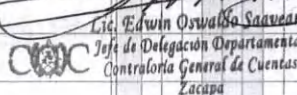 Lic. Edwin Oswaldo
Jefe de Delegación Departamental
Contraloría General de Cuentas
Zacapa